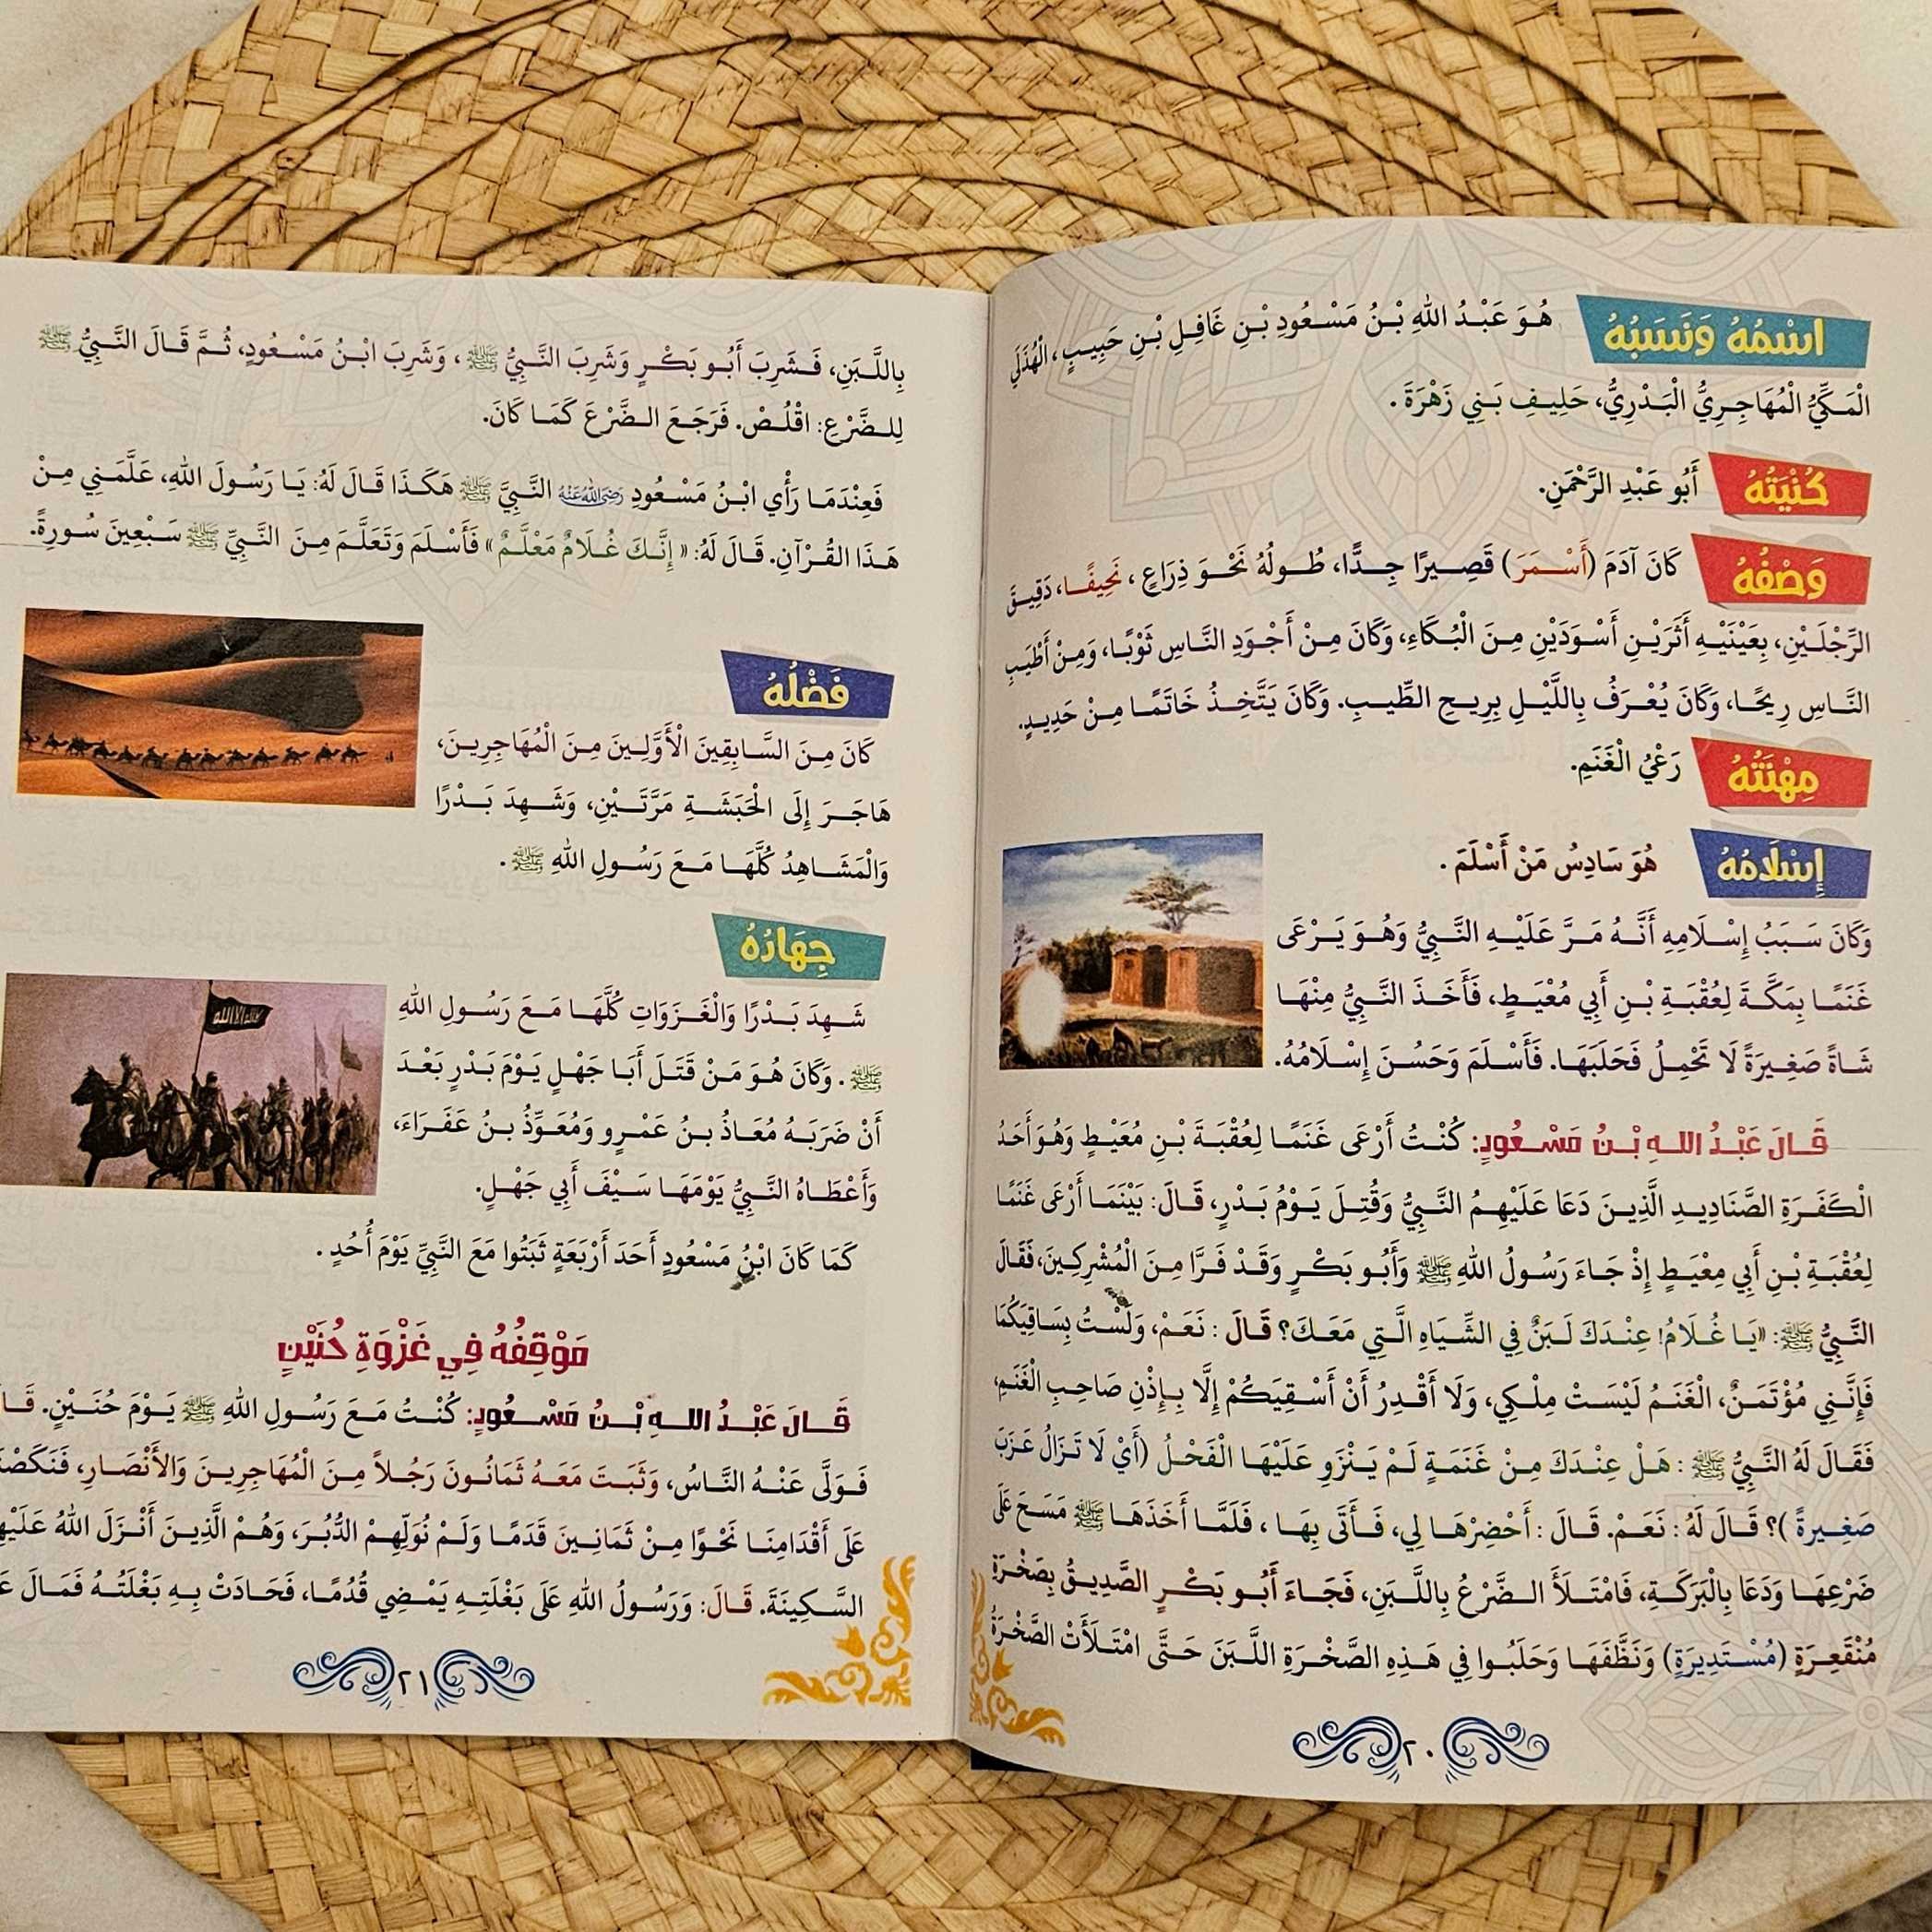 اسْمُهُ وَنَسَبُهُ
هُوَ عَبْدُ اللهِ بْنُ مَسْعُودِ بْنِ غَافِلِ بْنِ حَبِيبٍ، الْهُذَلِيِّ
الْمَكِّيُّ الْمُهَاجِرِيُّ الْبَدْرِيُّ، حَلِيفِ بَنِي زَهْرَةَ.
كُنْيَتُهُ
أَبُو عَبْدِ الرَّحْمَنِ.
وَصْفُهُ
كَانَ آدَمَ (أَسْمَرَ) قَصِيرًا جِدًّا، طُولُهُ نَحْوَ ذِرَاعٍ، نَحِيفًا، دَقِيقَ
الرِّجْلَيْنِ، بِعَيْنَيْهِ أَثَرَيْنِ أَسْوَدَيْنِ مِنَ الْبُكَاءِ، وَكَانَ مِنْ أَجْوَدِ النَّاسِ ثَوْبًا، وَمِنْ أَطْيَبِ
النَّاسِ رِيحًا، وَكَانَ يُعْرَفُ بِاللَّيْلِ بِرِيحِ الطِّيبِ. وَكَانَ يَتَّخِذُ خَاتَمًا مِنْ حَدِيدٍ.
مِهْنَتُهُ
رَعْيُ الْغَنَمِ.
إِسْلَامُهُ
هُوَ سَادِسُ مَنْ أَسْلَمَ.
وَكَانَ سَبَبُ إِسْلَامِهِ أَنَّهُ مَرَّ عَلَيْهِ النَّبِيُّ وَهُوَ يَرْعَى
غَنَمًا بِمَكَّةَ لِعُقْبَةِ بْنِ أَبِي مُعْيَطٍ، فَأَخَذَ النَّبِيُّ مِنْهَا
شَاةً صَغِيرَةً لَا تَحْمِلُ فَحَلَبَهَا. فَأَسْلَمَ وَحَسُنَ إِسْلَامُهُ.
قَالَ عَبْدُ اللهِ بْنُ مَسْعُودٍ: كُنْتُ أَرْعَى غَنَمًا لِعُقْبَةَ بْنِ مُعَيْطٍ وَهُوَ أَحَدُ
الْكَفَرَةِ الصَّنَادِيدِ الَّذِينَ دَعَا عَلَيْهِمُ النَّبِيُّ وَقُتِلَ يَوْمُ بَدْرٍ، قَالَ: بَيْنَمَا أَرْعَى غَنَمًا
لِعُقْبَةِ بْنِ أَبِي مِعْيَطٍ إِذْ جَاءَ رَسُولُ اللهِ ﷺ وَأَبُو بَكْرٍ وَقَدْ فَرَّا مِنَ الْمُشْرِكِينَ، فَقَالَ
النَّبِيُّ ﷺ: «يَا غُلَامُ! عِنْدَكَ لَبَنٌ فِي الشِّيَاهِ الَّتِي مَعَكَ؟ قَالَ: نَعَمْ، وَلَسْتُ بِسَاقِيكُمَا
فَإِنَّنِي مُؤْتَمَنٌ، الْغَنَمُ لَيْسَتْ مِلْكِي، وَلَا أَقْدِرُ أَنْ أَسْقِيَكُمْ إِلَّا بِإِذْنِ صَاحِبِ الْغَنَمِ،
فَقَالَ لَهُ النَّبِيُّ ﷺ: هَلْ عِنْدَكَ مِنْ غَنَمَةٍ لَمْ يَنْزَوِ عَلَيْهَا الْفَحْلُ (أَيْ لَا تَزَالُ عَزَبَ
صَغِيرةً)؟ قَالَ لَهُ: نَعَمْ. قَالَ: أَحْضِرْهَا لِي، فَأَتَى بِهَا، فَلَمَّا أَخَذَهَا ﷺ مَسَحَ عَلَى
ضَرْعِهَا وَدَعَا بِالْبَرَكَةِ، فَامْتَلَأَ الضَّرْعُ بِاللَّبَنِ، فَجَاءَ أَبُو بَكْرٍ الصَّدِيقُ بِصَخْرَةٍ
مُنْقَعِرَةٍ (مُسْتَدِيرَةٍ) وَنَظَّفَهَا وَحَلَبُوا فِي هَذِهِ الصَّخْرَةِ اللَّبَنَ حَتَّى امْتَلَأَتْ الصَّخْرَةُ
٢٠
بِاللَّبَنِ، فَشَرِبَ أَبُو بَكْرٍ وَشَرِبَ النَّبِيُّ ﷺ، وَشَرِبَ ابْنُ مَسْعُودٍ، ثُمَّ قَالَ النَّبِيُّ ﷺ
لِلضَّرْعِ: اقْلُصْ. فَرَجَعَ الضَّرْعَ كَمَا كَانَ.
فَعِنْدَمَا رَأَي ابْنُ مَسْعُودٍ رَضِيَ اللهُ عَنْهُ النَّبِيَّ ﷺ هَكَذَا قَالَ لَهُ: يَا رَسُولَ اللهِ، عَلِّمْنِي مِنْ
هَذَا القُرْآنِ. قَالَ لَهُ: «إِنَّكَ غُلَامٌ مَعْلَّمٌ» فَأَسْلَمَ وَتَعَلَّمَ مِنَ النَّبِيِّ ﷺ سَبْعِينَ سُورِةً.
فَضْلُهُ
كَانَ مِنَ السَّابِقِينَ الْأَوَّلِينَ مِنَ الْمُهَاجِرِينَ،
هَاجَرَ إِلَى الْحَبَشَةِ مَرَّتَيْنِ، وَشَهِدَ بَدْرًا
وَالْمَشَاهِدُ كُلَّهَا مَعَ رَسُولِ اللهِ ﷺ.
جِهَادُهُ
شَهِدَ بَدْرًا وَالْغَزَوَاتِ كُلَّهَا مَعَ رَسُولِ اللهِ
ﷺ. وَكَانَ هُوَ مَنْ قَتَلَ أَبَا جَهْلٍ يَوْمَ بَدْرٍ بَعْدَ
أَنْ ضَرَبَهُ مُعَاذُ بنُ عَمْرٍو وَمُعَوِّذُ بنُ عَفَرَاءَ،
وَأَعْطَاهُ النَّبِيُّ يَوْمَهَا سَيْفَ أَبِي جَهْلٍ.
كَمَا كَانَ ابْنُ مَسْعُودٍ أَحَدَ أَرْبَعَةٍ ثَبَتُوا مَعَ النَّبِيِّ يَوْمَ أُحُدٍ.
مَوْقِفُهُ فِي غَزْوَةِ حُنَيْنٍ
قَالَ عَبْدُ اللهِ بْنُ مَسْعُودٍ: كُنْتُ مَعَ رَسُولِ اللهِ ﷺ يَوْمَ حُنَيْنٍ.
فَوَلَّى عَنْهُ النَّاسُ، وَثَبَتَ مَعَهُ ثَمَانُونَ رَجُلاً مِنَ الْمُهَاجِرِينَ وَالأَنْصَارِ،
عَلَى أَقْدَامِنَا نَحْوًا مِنْ ثَمَانِينَ قَدَمًا وَلَمْ نُوَلِّهِمْ الدُّبُرَ، وَهُمْ الَّذِينَ أَنْزَلَ اللهُ
السَّكِينَةَ. قَالَ: وَرَسُولُ اللهِ عَلَى بَغْلَتِهِ يَمْضِي قُدُمًا، فَحَادَتْ بِهِ بَغْلَتُهُ فَمَالَ
٢١